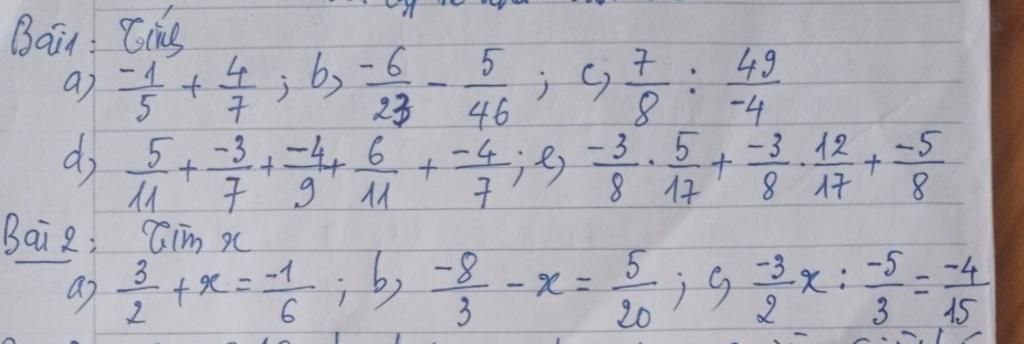 Bài 1: Tính
a) -1/5 + 4/7 ; b) -6/23 - 5/46 ; c) 7/8 : 49/-4
d) 5/11 + -3/7 + -4/9 + 6/11 + -4/7 ; e) -3/8 . 5/17 + -3/8 . 12/17 + -5/8
Bài 2: Tìm x
a) 3/2 + x = -1/6 ; b) -8/3 - x = 5/20 ; c) -3/2 x : -5/3 = -4/15